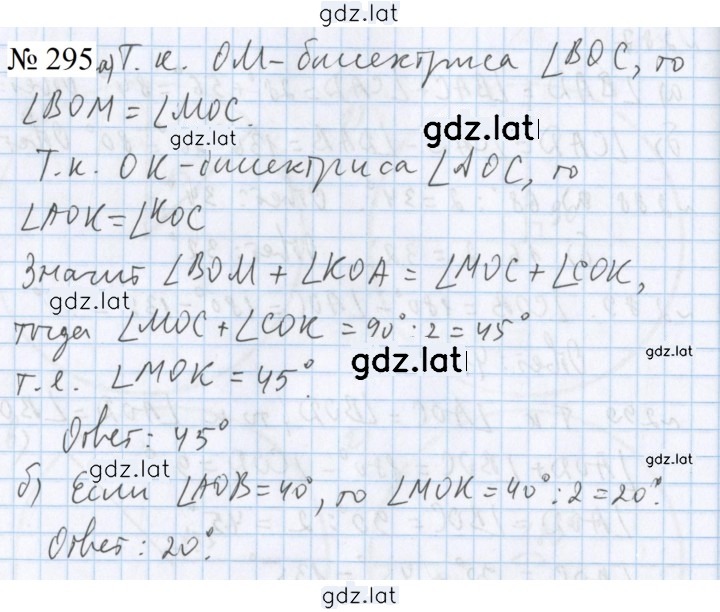 gdz.lat
№ 295 а) Т. к. OM - биссектриса ∠BOC, то
∠BOM = ∠MOC.
gdz.lat
gdz.lat
Т.к. OK - биссектриса ∠AOC, то
∠AOK = ∠KOC
Значит ∠BOM + ∠KOA = ∠MOC + ∠COK,
gdz.lat
тогда ∠MOC + ∠COK = 90° : 2 = 45°
gdz.lat
gdz.lat
т. е. ∠MOK = 45°.
Ответ: 45°
gdz.lat
gdz.lat
б) Если ∠AOB = 40°, то ∠MOK = 40° : 2 = 20°.
Ответ: 20°.
gdz.lat